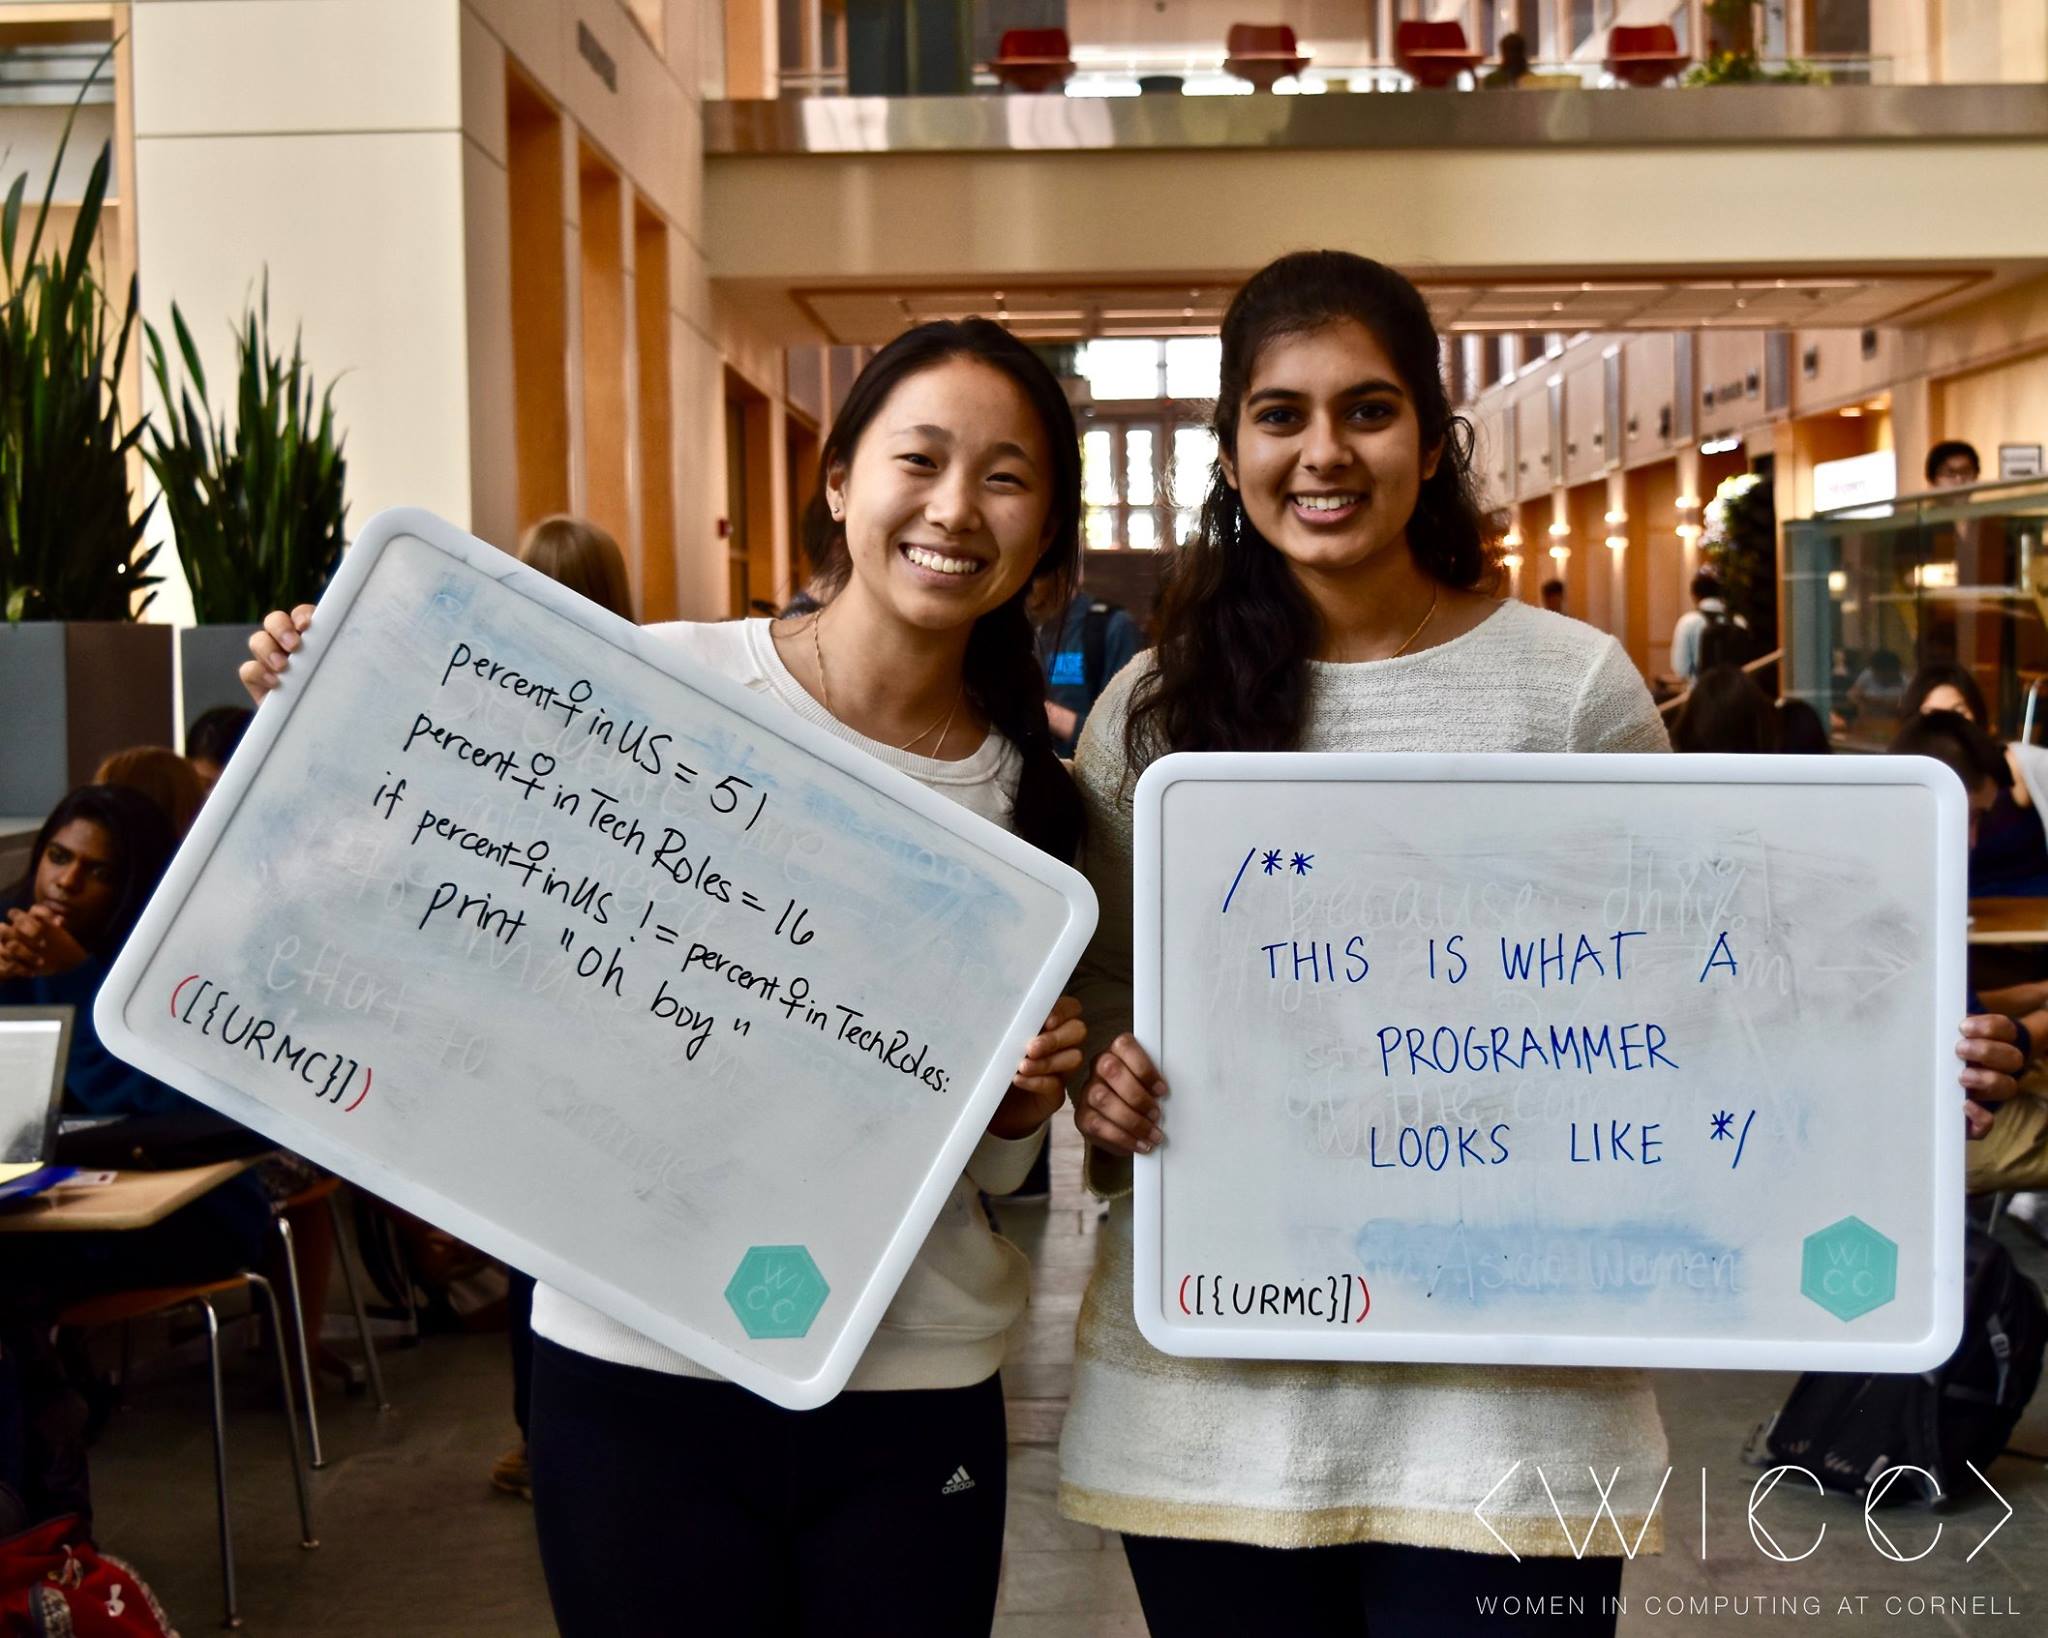 percent♀inUS = 51
percent♀inTech Roles = 16
if percent♀inUS != percent♀inTechRoles:
print "oh boy"
([{URMC}])
WICC
/**
THIS IS WHAT A
PROGRAMMER
LOOKS LIKE */
([{URMC}])
WI
CC
adidas
<WICC>
WOMEN IN COMPUTING AT CORNELL